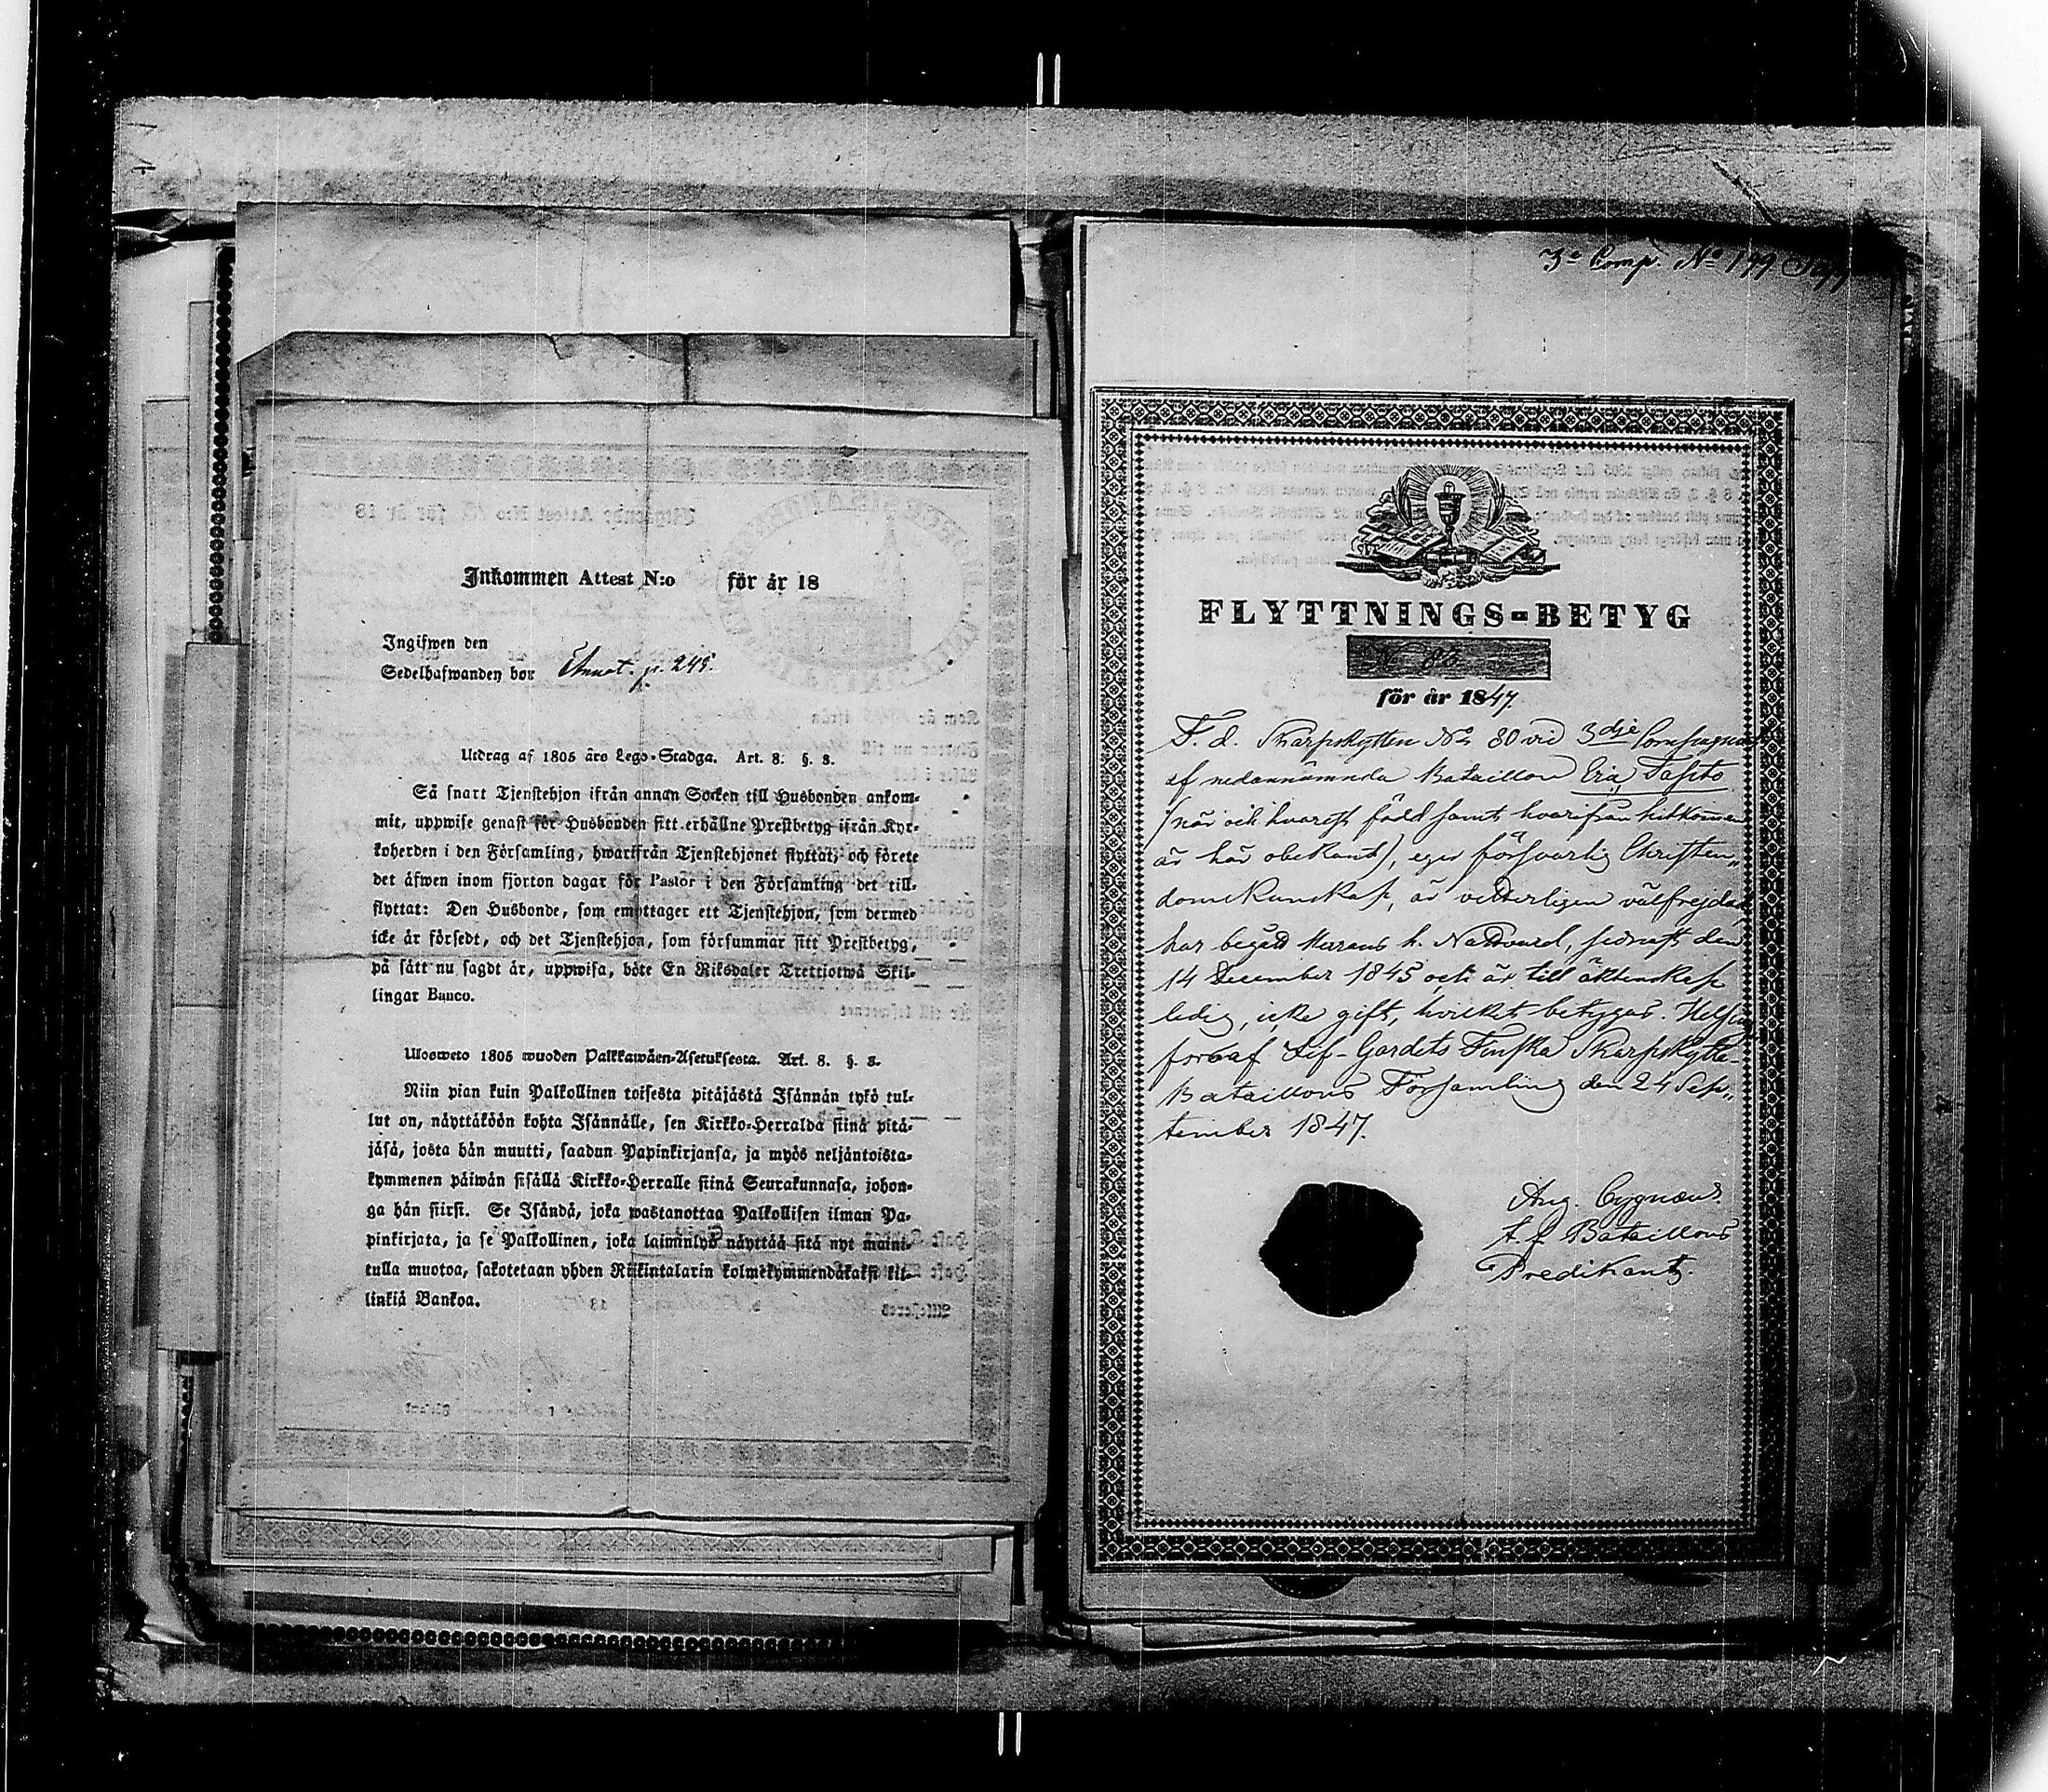 Inkommen Attest N:o för år 18
Ingifwen den
Sedelhafwanden bor Annot. p. 245.
Utdrag af 1805 års Lego-Stadga. Art. 8. §. 3.
Så snart Tjenstehjon ifrån annan Socken till Husbonden ankom-
mit, uppwise genast för Husbonden sitt erhållne Prestbetyg ifrån Kyr-
koherden i den Församling, hwarifrån Tjenstehjonet flyttat, och förete
det äfwen inom fjorton dagar för Pastor i den Församling det till-
flyttat: Den Husbonde, som emottager ett Tjenstehjon, som dermed
icke är försedt, och det Tjenstehjon, som försummar sitt Prestbetyg,
på sätt nu sagdt är, uppwisa, böte En Riksdaler Trettiotwå Skil-
lingar Banco.
Ulosweto 1805 wuoden Palkkawäen-Asetuksesta. Art. 8. §. 3.
Niin pian kuin Palkollinen toisesta pitäjästä Isännän tykö tul-
lut on, näyttäköön kohta Isännälle, sen Kirkko-Herralda siinä pitä-
jäsä, josta hän muutti, saadun Papinkirjansa, ja myös neljäntoista-
kymmenen päiwän sisällä Kirkko-Herralle siinä Seurakunnasa, johon-
ga hän siirsi. Se Isändä, joka wastanottaa Palkollisen ilman Pa-
pinkirjata, ja se Palkollinen, joka laiminlyö näyttää sitä nyt maini-
tulla muotoa, sakotetaan yhden Riikintalarin kolmekymmendäkaksi kil-
linkiä Bankoa.
3e Comp. No 199
FLYTTNINGS-BETYG
No 83
för år 1847.
F. d. Skarpskytten No 80 vid 3dje Compagniet
af nedannämnda Bataillon Eric Tapito
(när och hvarest född samt hvarifrån hitkommen
är här obekant), eger försvarlig Christen„
domskunskap, är vetterligen välfrejdad,
har begått Herrans h. Nattvard, sednast den
14 December 1845 och är till äktenskap
ledig, icke gift, hvilket betygas. Helsing
fors af Lif-Gardets Finska Skarpskytte-
Bataillons Församling den 24 Sep„
tember 1847.
Aug. Cygnæus.
t. f. Bataillons
Predikant.